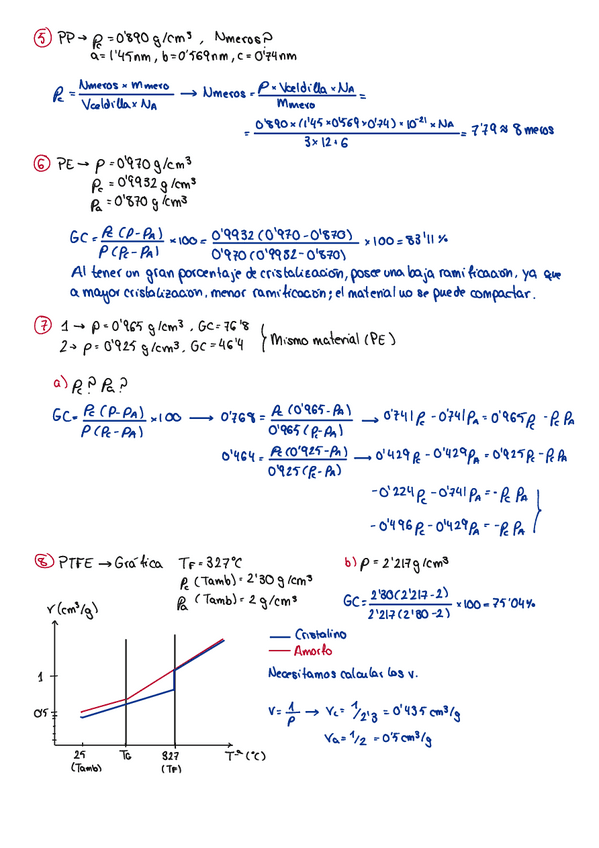 ⑤ PP → ρc = 0'890 g/cm³, Nmeros?
a = 1'45nm, b = 0'569nm, c = 0'74nm
ρc = Nmeros × Mmero / Vceldilla × NA → Nmeros = ρ × Vceldilla × NA / Mmero =
= 0'890 × (1'45 × 0'569 × 0'74) × 10⁻²¹ × NA / 3 × 12 + 6 = 7'79 ≈ 8 meros
⑥ PE → ρ = 0'970 g/cm³
ρc = 0'9932 g/cm³
ρa = 0'870 g/cm³
GC = ρc (ρ - ρA) / ρ (ρc - ρA) × 100 = 0'9932 (0'970 - 0'870) / 0'970 (0'9932 - 0'870) × 100 = 83'11 %
Al tener un gran porcentaje de cristalización, posee una baja ramificación, ya que
a mayor cristalización, menor ramificación; el material no se puede compactar.
⑦ 1 → ρ = 0'965 g/cm³, GC = 76'8
2 → ρ = 0'925 g/cm³, GC = 46'4 } Mismo material (PE)
a) ρc? ρa?
GC = ρc (ρ - ρA) / ρ (ρc - ρA) × 100 → 0'768 = ρc (0'965 - ρA) / 0'965 (ρc - ρA) → 0'741 ρc - 0'741 ρA = 0'965 ρc - ρc ρA
0'464 = ρc (0'925 - ρA) / 0'925 (ρc - ρA) → 0'429 ρc - 0'429 ρA = 0'925 ρc - ρc ρA
-0'224 ρc - 0'741 ρA = -ρc ρA
-0'496 ρc - 0'429 ρA = -ρc ρA
⑧ PTFE → Gráfica TF = 327°C
ρc (Tamb) = 2'30 g/cm³
ρa (Tamb) = 2 g/cm³
b) ρ = 2'217 g/cm³
GC = 2'30 (2'217 - 2) / 2'217 (2'30 - 2) × 100 = 75'04%
V (cm³/g)
1
0'5
25
(Tamb)
TG
327
(TF)
Tª (°C)
Cristalino
Amorfo
Necesitamos calcular los v.
V = 1/ρ → Vc = 1/2'3 = 0'435 cm³/g
Va = 1/2 = 0'5 cm³/g